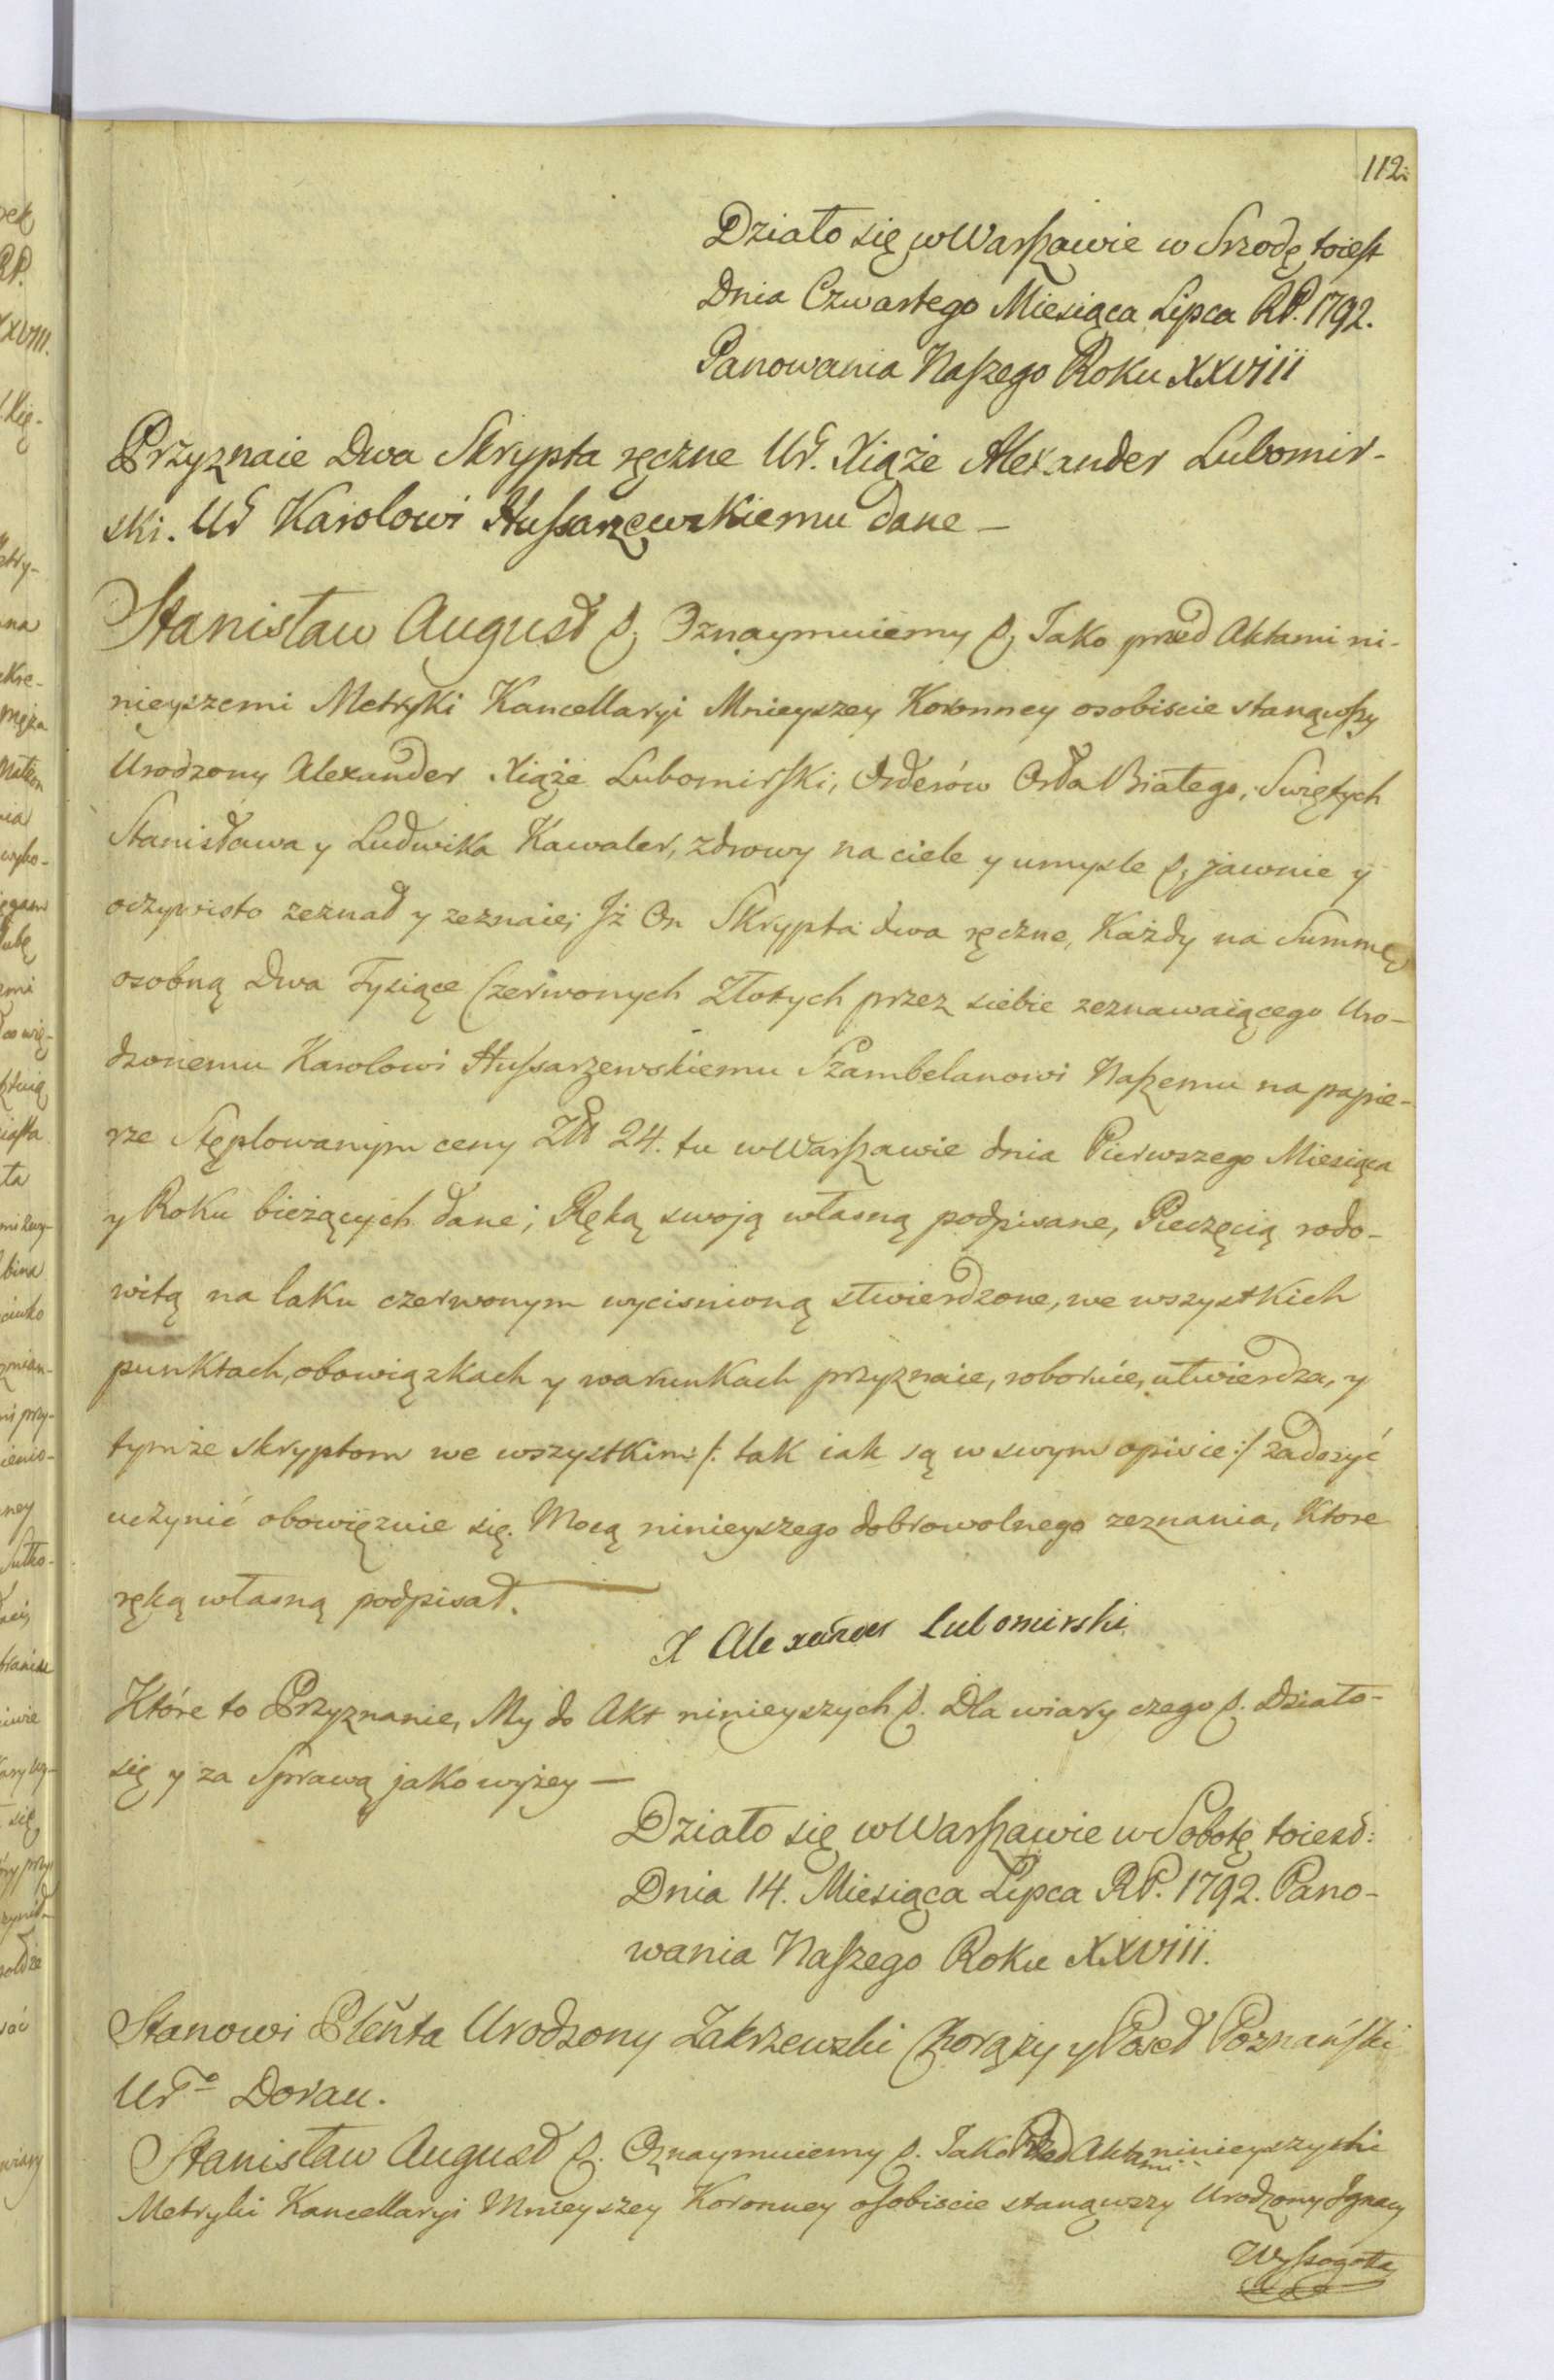 112.
Działo się w Warszawie w Srzodę toiest
Dnia Czwartego Miesiąca Lipca RP. 1792.
Panowania Naszego Roku XXVIII
Przyznaie Dwa Skrypta ręczne Ur. Xiąże Alexander Lubomir-
ski. Ur Karolowi Hussarzewskiemu dane —
Stanisław August &. Oznaymuiemy &. Jako przed Aktami ni-
nieyszemi Metryki Kancellaryi Mnieyszey Koronney osobiscie stanąwszy
Urodzony Alexander Xiąże Lubomirski, Orderów Orła Białego, Swiętych
Stanisława y Ludwika Kawaler, zdrowy na ciele y umysle &. jawnie y
oczywisto zeznał y zeznaie; Jż On Skrypta dwa ręczne, Każdy na Summę
osobną Dwa Tysiące Czerwonych Złotych przez siebie zeznawaiącego Uro-
dzonemu Karolowi Hussarzewskiemu Szambelanowi Naszemu na papie-
rze Stęplowanym ceny Zł 24. tu w Warszawie dnia Pierwszego Miesiąca
y Roku bieżących dane; Ręką swoją własną podpisane, Pieczęcią rodo-
witą na laku czerwonym wycisnioną stwierdzone, we wszystkich
punktach, obowiązkach y warunkach przyznaie, roboruie, utwierdza, y
tymże skryptom we wszystkim /: tak iak są w swym opisie :/ zadosyć
uczynić obowięzuie się. Mocą ninieyszego dobrowolnego zeznania, Ktore
ręką własną podpisał.
X Alexander Lubomirski
Które to Przyznanie, My do Akt ninieyszych &. Dla wiary czego &. Działo-
się y za Sprawą jako wyżey —
Działo się w Warszawie w Sobotę toiest:
Dnia 14. Miesiąca Lipca RP. 1792. Pano-
wania Naszego Roku XXVIII.
Stanowi Pleńta Urodzony Zakrzewski Chorąży y Poseł Poznański
Uro Dorau.
Stanisław August &. Oznaymuiemy &. Jako Przed Aktami ninieyszymi
Metryki Kancellaryi Mnieyszey Koronney osobiscie stanąwszy Urodzony Jgnacy
Wyssogotta